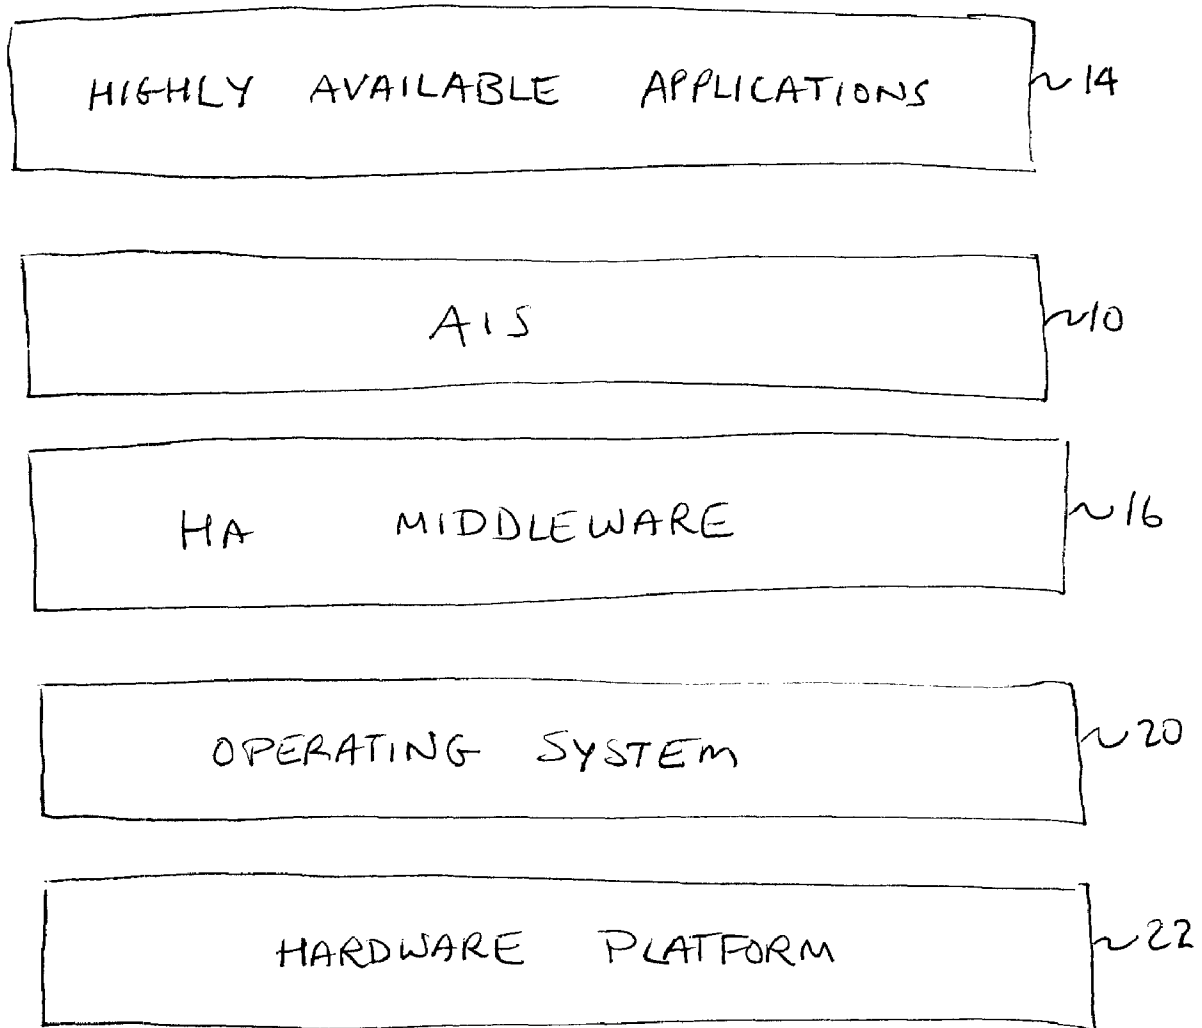 HIGHLY AVAILABLE APPLICATIONS 14
AIS 10
HA MIDDLEWARE 16
OPERATING SYSTEM 20
HARDWARE PLATFORM 22